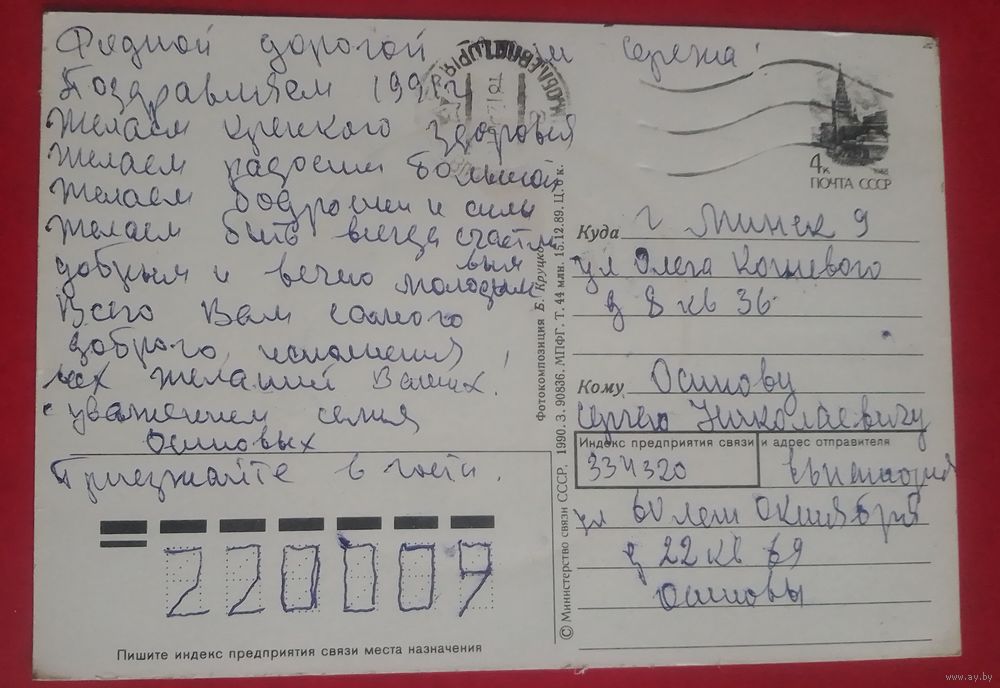 Родной дорогой Сережа!
Поздравляем 1991 г
Желаем крепкого здоровья
Желаем радости большой
Желаем бодрости и силы
Желаем быть всегда счастли
вым
добрым и вечно молодым
Всего Вам самого
доброго, исполнения
всех желаний Ваших!
с уважением семья
Осиповых
Приезжайте в гости.
Пишите индекс предприятия связи места назначения
220009
© Министерство связи СССР. 1990. З. 90836. МПФГ. Т. 44 млн. 15.12.89. Ц. 5 к.
Фотокомпозиция Б. Круцко
4к
1988
ПОЧТА СССР
Куда г Минск 9
ул Олега Кошевого
д 8 кв 36
Кому Осипову
Сергею Николаевичу
Индекс предприятия связи и адрес отправителя
334320 Евпатория
ул 60 лет Октября
д 22 кв 69
Осиповы
www.ay.by